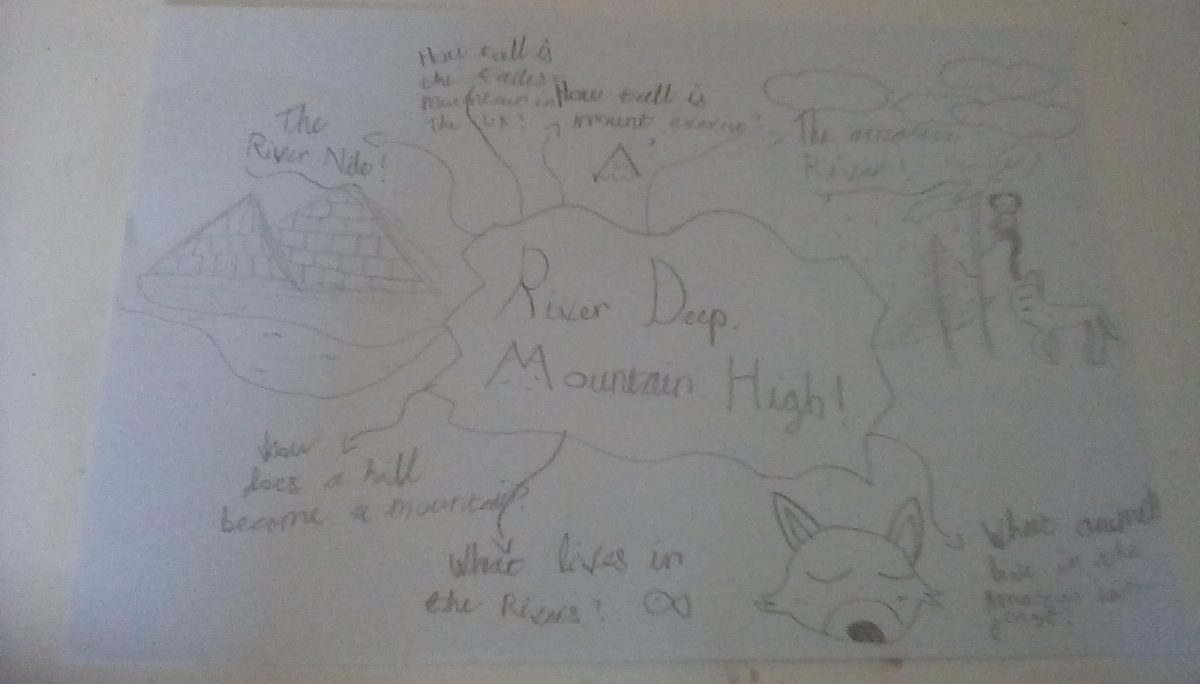 How tall is
the
mountain in
the UK?
How tall is
mount
The
River Nile!
The amazon
River!
River Deep,
Mountain High!
How
does a hill
become a mountain?
What lives in
the Rivers?
What animals
live